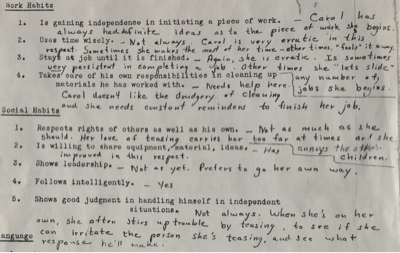 Work Habits
1. Is gaining independence in initiating a piece of work. - Carol has
always had definite ideas as to the piece of work she begins.
2. Uses time wisely. - Not always. Carol is very erratic in this
respect. Sometimes she makes the most of her time - other times, "fools" it away.
3. Stays at job until it is finished. - Again, she is erratic. Is sometimes
very persistent in completing a job. Other times she "lets slide"
4. Takes care of his own responsibilities in cleaning up any number of
materials he has worked with. - Needs help here jobs she begins.
Carol doesn't like the drudgery of cleaning
and she needs constant reminders to finish her job.
Social Habits
1. Respects rights of others as well as his own. - Not as much as she
should. Her love of teasing carries her too far at times and she
2. Is willing to share equipment, material, ideas. - Has annoys the other
improved in this respect. children.
3. Shows leadership. - Not as yet. Prefers to go her own way.
4. Follows intelligently. - Yes
5. Shows good judgment in handling himself in independent
situations. Not always. When she's on her
own, she often stirs up trouble by teasing, to see if she
can irritate the person she's teasing, and see what
anguage response he'll make.